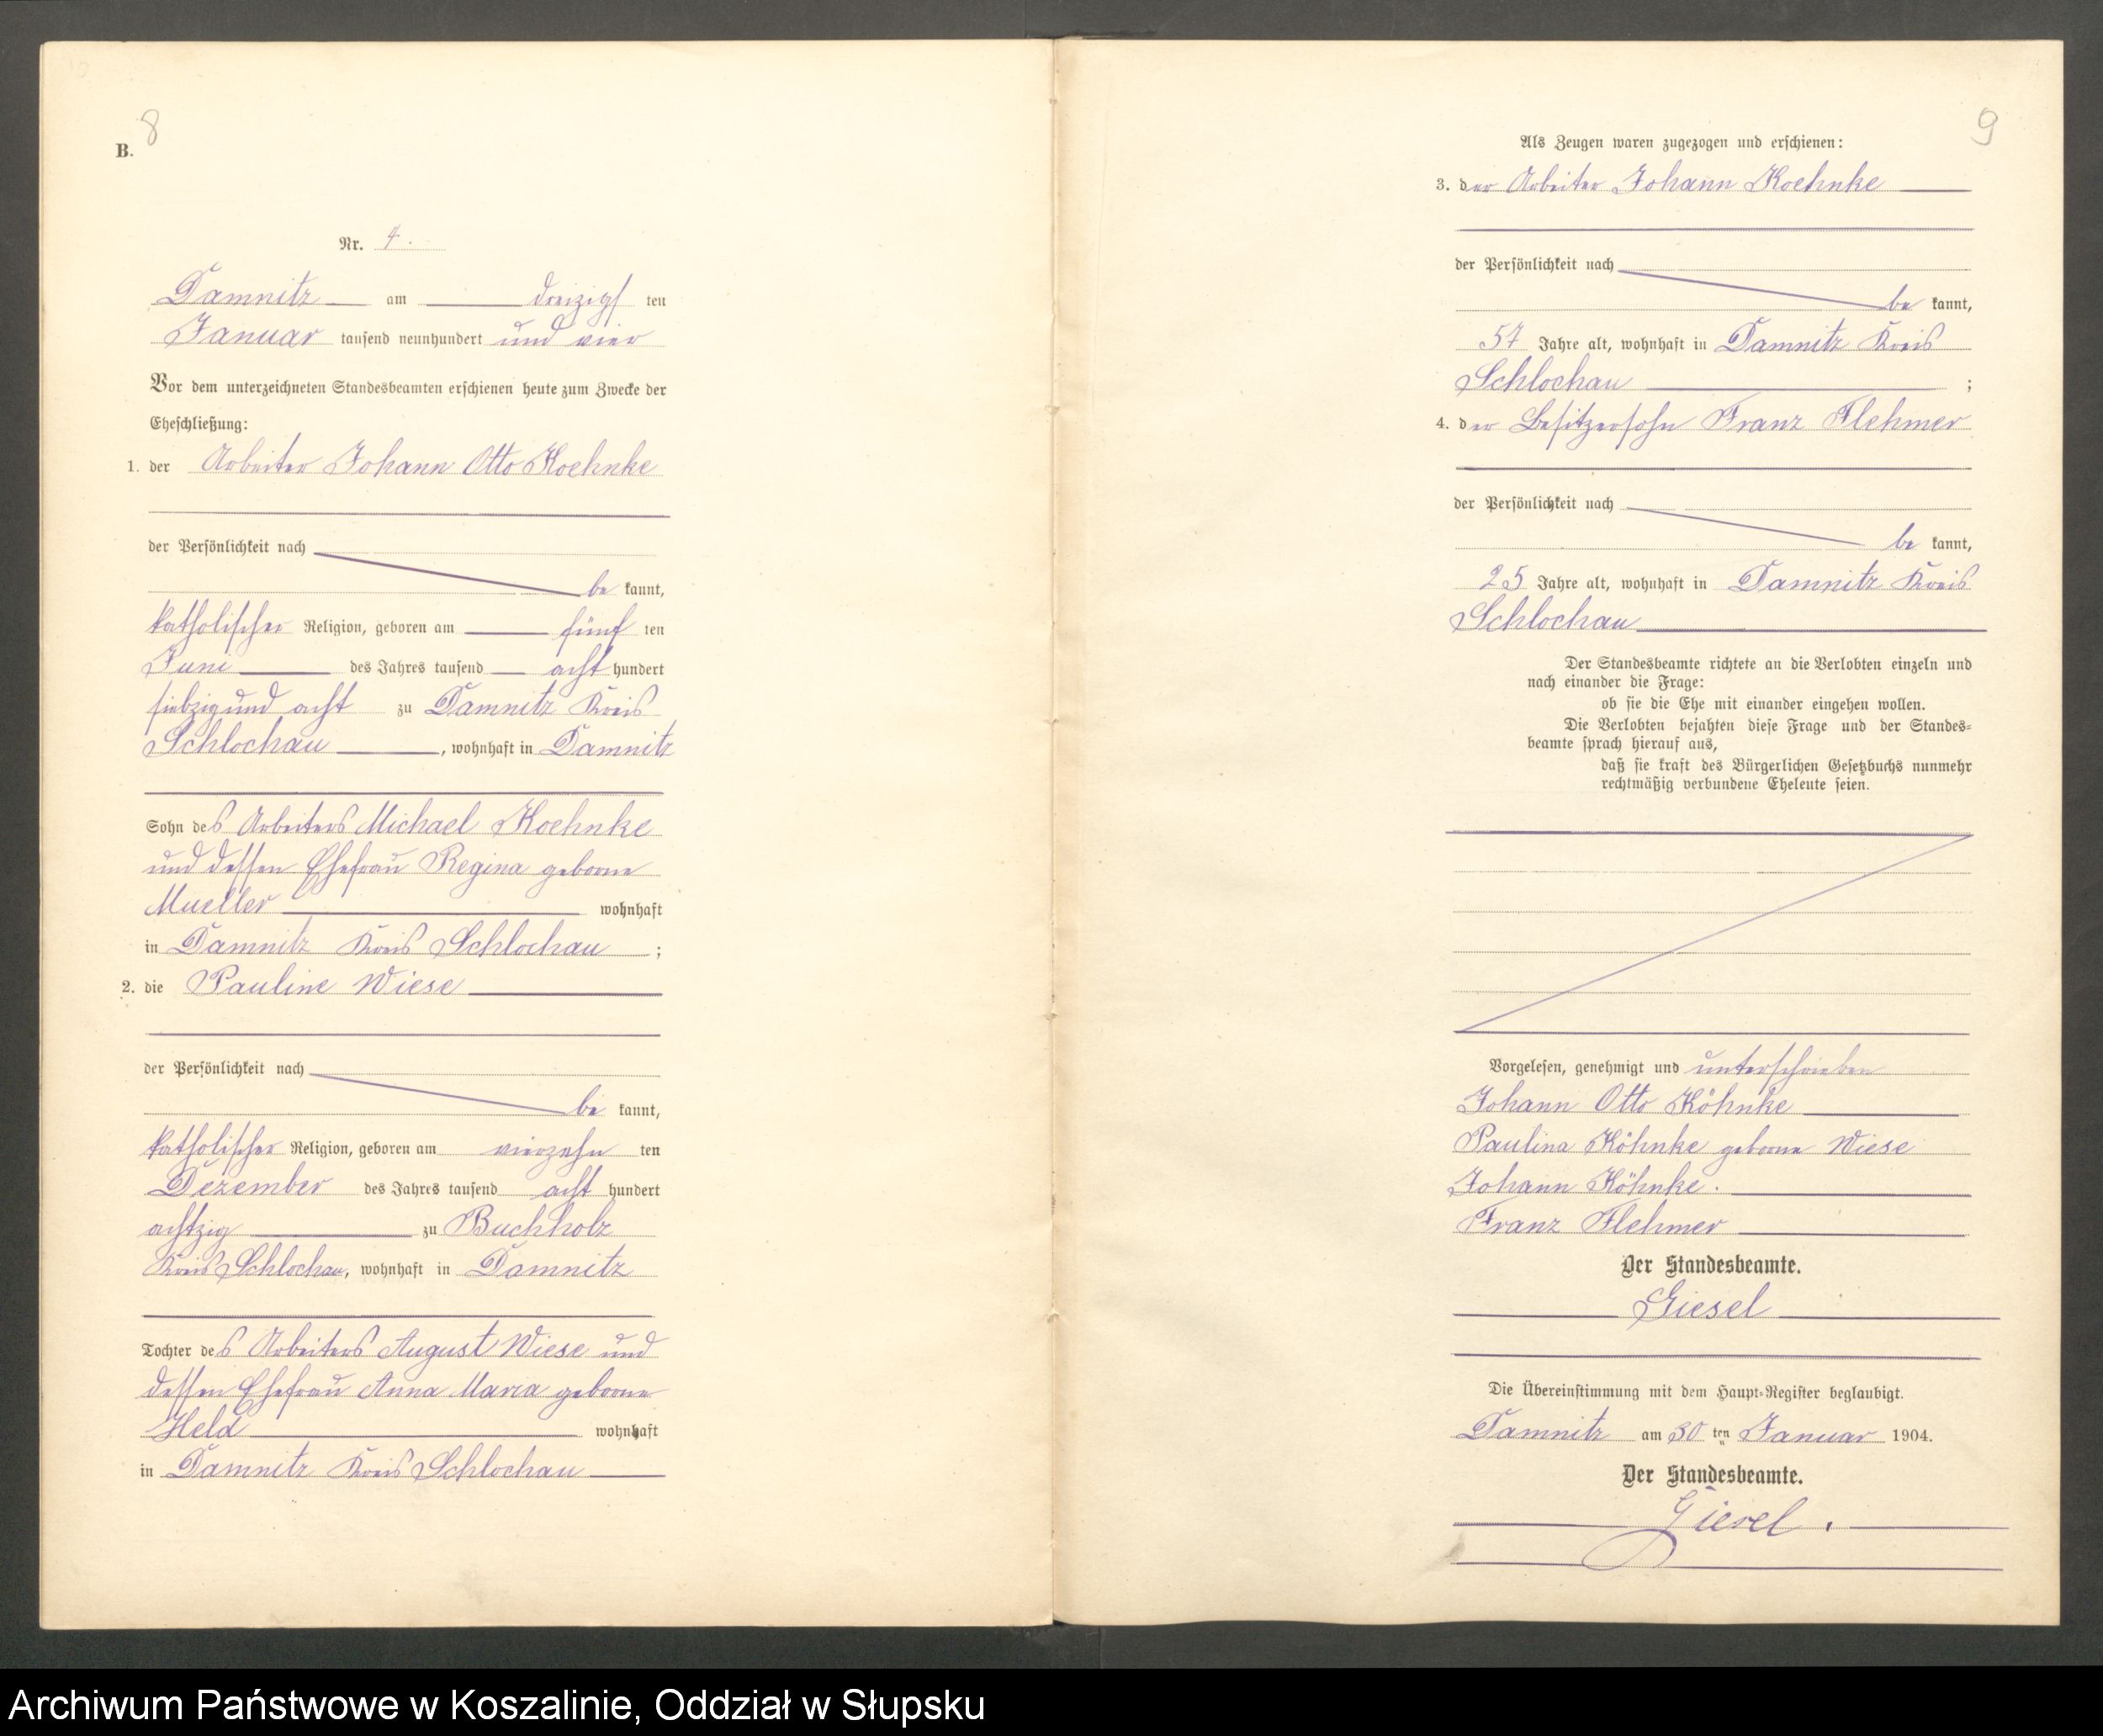 8
B.
Nr. 4.
Damnitz am dreizigsten
Januar tausend neunhundert und vier
Vor dem unterzeichneten Standesbeamten erschienen heute zum Zwecke der
Eheschließung:
1. der Arbeiter Johann Otto Koehnke
der Persönlichkeit nach
be kannt,
katholischer Religion, geboren am fünf ten
Juni des Jahres tausend acht hundert
siebzig und acht zu Damnitz Kreis
Schlochau, wohnhaft in Damnitz
Sohn des Arbeiters Michael Koehnke
und dessen Ehefrau Regina geborne
Mueller wohnhaft
in Damnitz Kreis Schlochau ;
2. die Pauline Wiese
der Persönlichkeit nach
be kannt,
katholischer Religion, geboren am vierzehn ten
Dezember des Jahres tausend acht hundert
achtzig zu Buchholz
Kreis Schlochau, wohnhaft in Damnitz
Tochter des Arbeiters August Wiese und
dessen Ehefrau Anna Maria geborne
Held wohnhaft
in Damnitz Kreis Schlochau
9
Als Zeugen waren zugezogen und erschienen:
3. der Arbeiter Johann Koehnke
der Persönlichkeit nach
be kannt,
57 Jahre alt, wohnhaft in Damnitz Kreis
Schlochau ;
4. der Besitzersohn Franz Flehmer
der Persönlichkeit nach
be kannt,
25 Jahre alt, wohnhaft in Damnitz Kreis
Schlochau
Der Standesbeamte richtete an die Verlobten einzeln und
nach einander die Frage:
ob sie die Ehe mit einander eingehen wollen.
Die Verlobten bejahten diese Frage und der Standes-
beamte sprach hierauf aus,
daß sie kraft des Bürgerlichen Gesetzbuchs nunmehr
rechtmäßig verbundene Eheleute seien.
Vorgelesen, genehmigt und unterschrieben
Johann Otto Köhnke
Paulina Köhnke geborne Wiese
Johann Köhnke.
Franz Flehmer
Der Standesbeamte.
Giesel
Die Übereinstimmung mit dem Haupt-Register beglaubigt.
Damnitz am 30 ten Januar 1904.
Der Standesbeamte.
Giesel.
Archiwum Państwowe w Koszalinie, Oddział w Słupsku